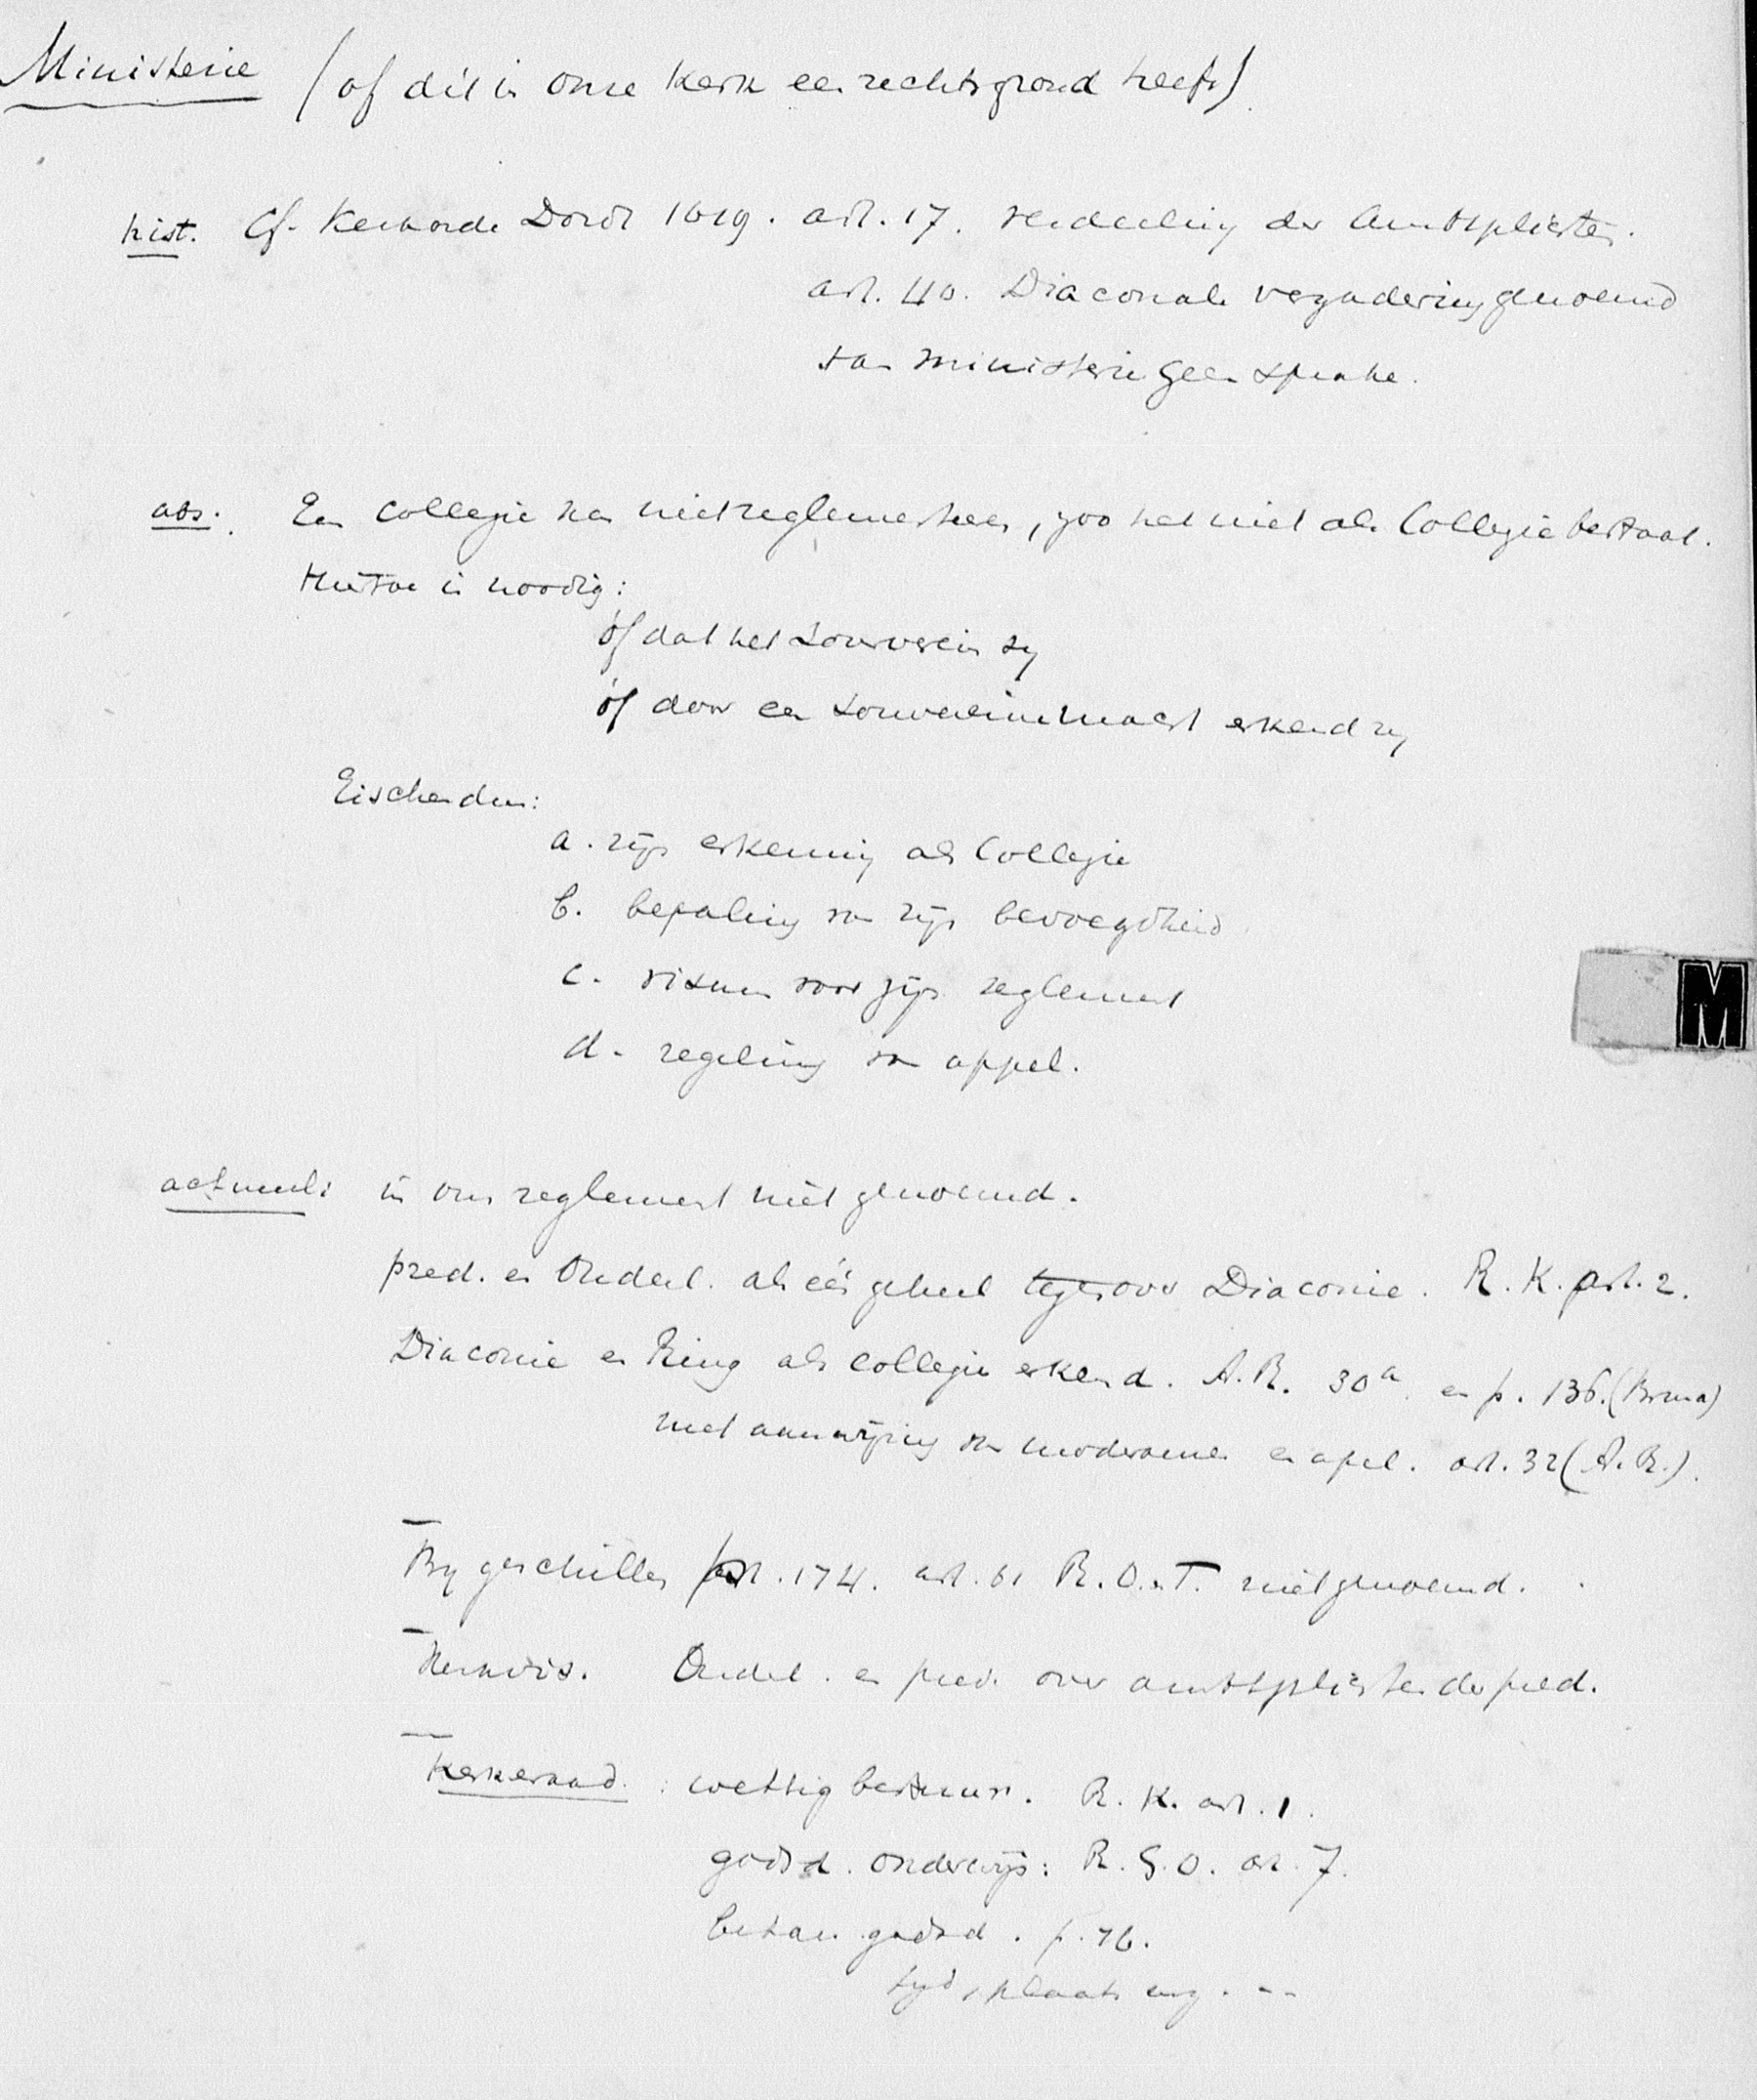 Ministerie (of dit in onze Kerk een rechtsgrond heeft)
hist. Cf. Kerkorde Dordt 1619. art. 17. verdeeling der Ambtsplichten.
art. 40. Diaconale vergadering genoemd
van ministerie geen sprake.
abs. Een collegie kan niet reglementeeren, zoo het niet als Collegie bestaat.
Hiertoe is noodig:
óf dat het souverein zy
óf door een souvereine macht erkend zy
Eischen dus:
a. zijn erkenning als Collegie
b. bepaling van zijn bevoegdheid
c. visum voor zijn reglement
d. regeling van appel.
actueel: in ons reglement niet genoemd.
pred. en Ouderl. als één geheel tegenover Diaconie. R. K. art. 2.
Diaconie en Ring als collegie erkend. A. R. 30a en p. 136. (Bruna)
met aanwijzing van moderamen en apel. art. 32 (A. R.).
By geschillen 174. art. 61 R. O. e. T. niet genoemd.
Ouderl. en pred. over ambtsplichten der pred.
Kerkeraad: wettig bestuur. R. K. art. 1.
godsd. onderwijs: R. G. O. art. 7.
godsd. p. 76.
tyd, plaats enz. --